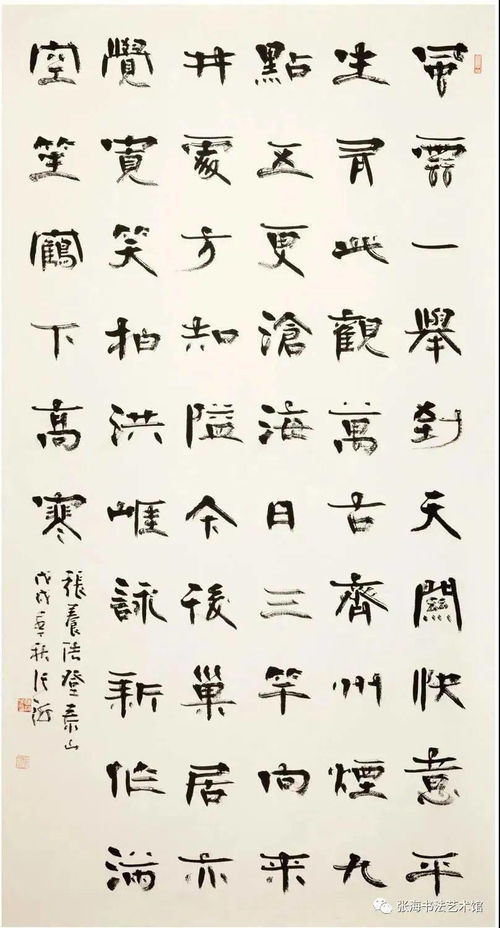 風雲一舉到天關快意平
生有此觀萬古齊州煙九
點五更滄海日三竿向來
井處方知隘今後巢居亦
覺寬笑拍洪崕詠新作滿
空笙鶴下高寒
張養浩登泰山
戊戌秋张海
张海书法艺术馆